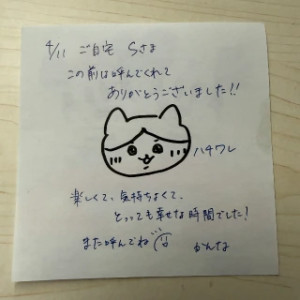 4/11 ご自宅 Sさま
この前は呼んでくれて
ありがとうございました!!
ハチワレ
楽しくて、気持ちよくて、
とっっても幸せな時間でした!
また呼んでね
かんな